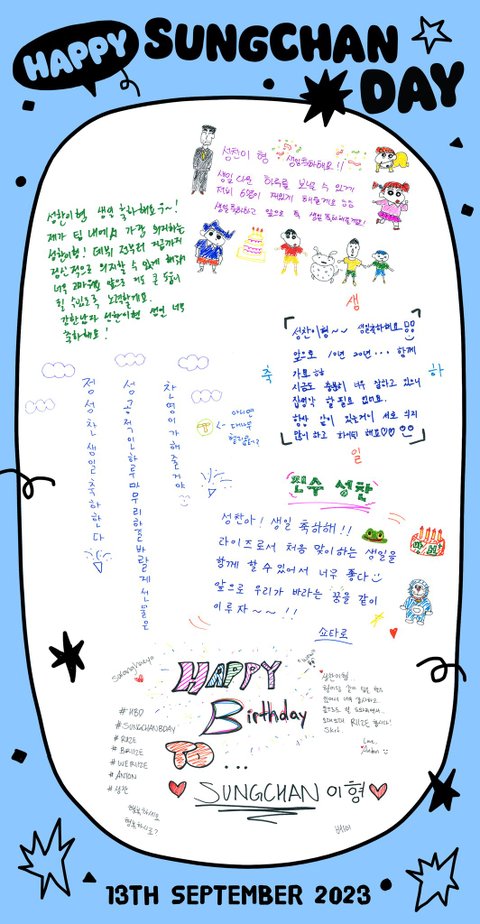 HAPPY SUNGCHAN
DAY
성찬이 형 생일축하해요!!
생일 다운 하루를 보낼 수 있게
저희 6명이 재밌게 해줄게요
성찬이형 생일 축하해요~!
제가 팀 내에서 가장 의지하는
성찬이형! 데뷔 전부터 지금까지
정신적으로 의지할 수 있게 해줘서
너무 고마워요 앞으로 기도 큰 5움이
될 수 있도록 노력할게요.
강한남자 성찬이형 생일 너무
축하해요!
생
축
하
일
성찬이형~~ 생일축하해요
앞으로 10년 20년... 함께
가요
지금도 충분히 너무 잘하고 있으니
항상 같이 있는거에 서로 의지
많이 하고 화이팅 해요
정성찬생일축하한다
성공적인하루마무리하길바랄게선물은
찬영이가해줄거야
진수성찬
성찬아! 생일 축하해!!
라이즈로서 처음 맞이하는 생일을
함께 할 수 있어서 너무 좋다
앞으로 우리가 바라는 꿈을 같이
이루자~~!!
쇼타로
HAPPY
Birthday
TO...
SUNGCHAN 이형
Saranghaeyo
#HBD
#SUNGCHANBDAY
#RIIZE
#BRIIZE
#WERIIZE
#ANTON
#성찬
행복하시죠
행복하시죠?
성찬이형
Love,
Anton
13TH SEPTEMBER 2023